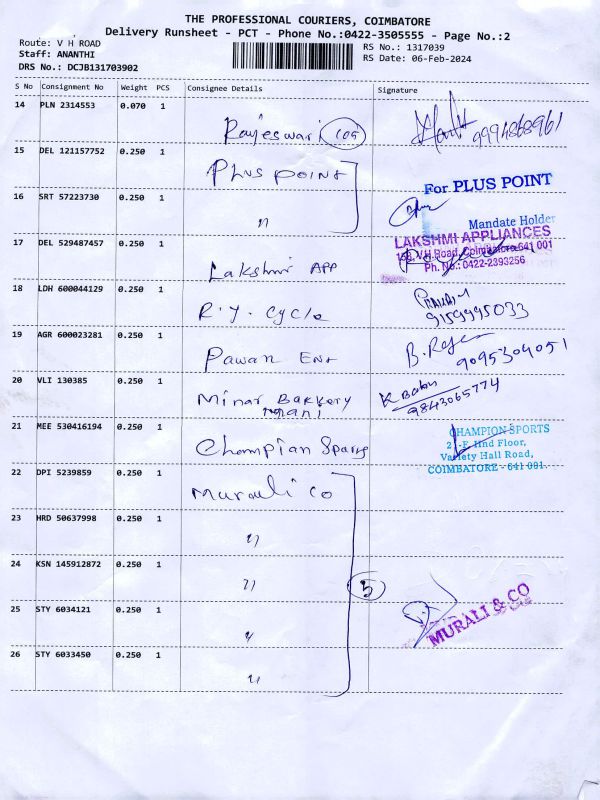 THE PROFESSIONAL COURIERS, COIMBATORE
Delivery Runsheet - PCT - Phone No.:0422-3505555 - Page No.:2
Route: V H ROAD
Staff: ANANTHI
DRS No.: DCJB131703902
RS No.: 1317039
RS Date: 06-Feb-2024
S No Consignment No Weight PCS Consignee Details Signature
14 PLN 2314553 0.070 1
Rajeswari 9994868961
15 DEL 121157752 0.250 1
Plus point
For PLUS POINT
16 SRT 57223730 0.250 1
"
Mandate Holder
17 DEL 529487457 0.250 1
Lakshmi APP
LAKSHMI APPLIANCES
V.H.Road, Coimbatore-641 001
Ph. No.: 0422-2393256
18 LDH 600044129 0.250 1
R.Y. Cycle
9159995033
19 AGR 600023281 0.250 1
Pawan Ent
B. 9095304051
20 VLI 130385 0.250 1
Minar Bakkery
mani
K Babu
9843065774
21 MEE 530416194 0.250 1
Champian
CHAMPION SPORTS
IInd Floor,
Variety Hall Road,
COIMBATORE - 641 001.
22 DPI 5239859 0.250 1
Murali co
23 HRD 50637998 0.250 1
"
24 KSN 145912872 0.250 1
"
5
MURALI & CO
25 STY 6034121 0.250 1
"
26 STY 6033450 0.250 1
"